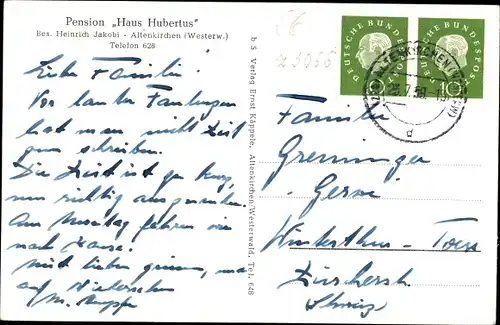 Pension „Haus Hubertus"
Bes. Heinrich Jakobi - Altenkirchen (Westerw.)
Telefon 628
Liebe Familie!
Vor lauter
hat man nicht Zeit
zum schreiben.
Die Zeit ist zu kurz,
um richtig
Am Montag fahren wir
nach Hause.
mit lieben
auf Wiedersehen
b S Verlag Ernst Käppele, Altenkirchen/Westerwald, Tel. 648
DEUTSCHE BUNDESPOST
10
DEUTSCHE BUNDESPOST
10
d
Familie
Greminger
Winterthur - Töss
Zürcherstr
Schweiz